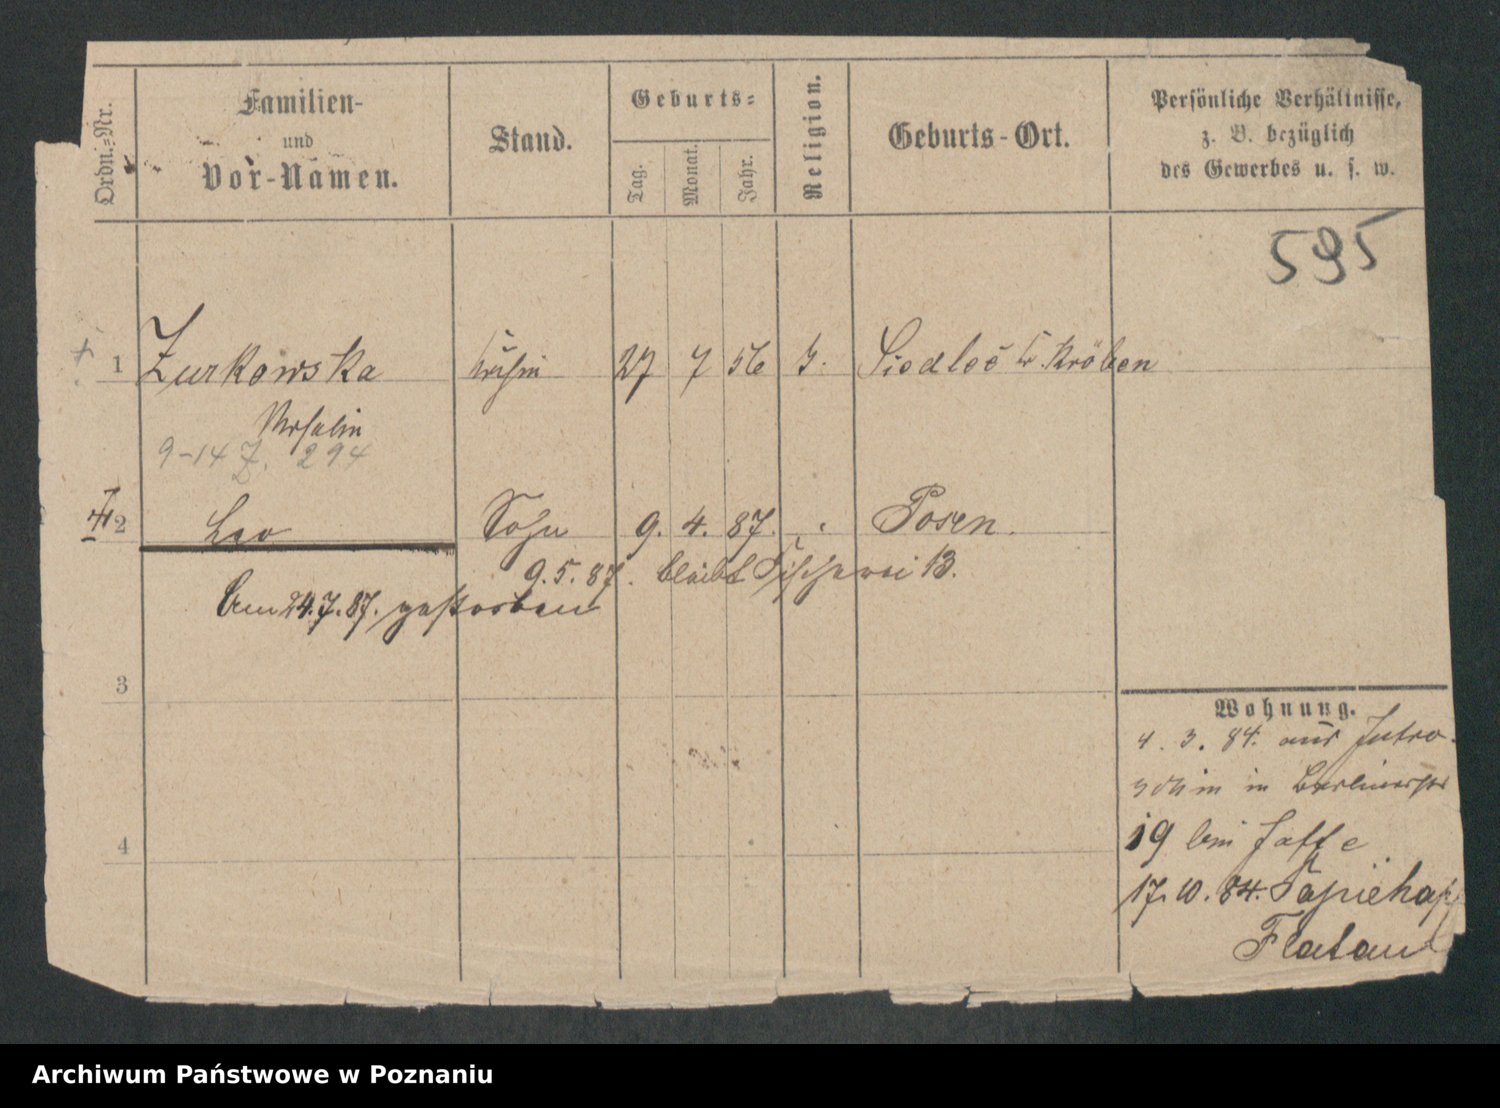 Ordn.=Nr.
Familien-
und
Vor-Namen.
Stand.
Geburts=
Tag.
Monat.
Jahr.
Religion.
Geburts-Ort.
Persönliche Verhältnisse,
z. B. bezüglich
des Gewerbes u. s. w.
595
1 Zurkowska 27 7 56 Siedleč Kröben
9-14 Z. 294
2 Leo Sohn 9. 4. 87. Posen.
9. 5. 87. bleibt Fischerei 13.
Am 24.7.87. gestorben
3
4
Wohnung.
4. 3. 84. aus Jutro-
schin in Berlinerstr
19 bei Jaffe
17. 10. 84.
Flatau
Archiwum Państwowe w Poznaniu